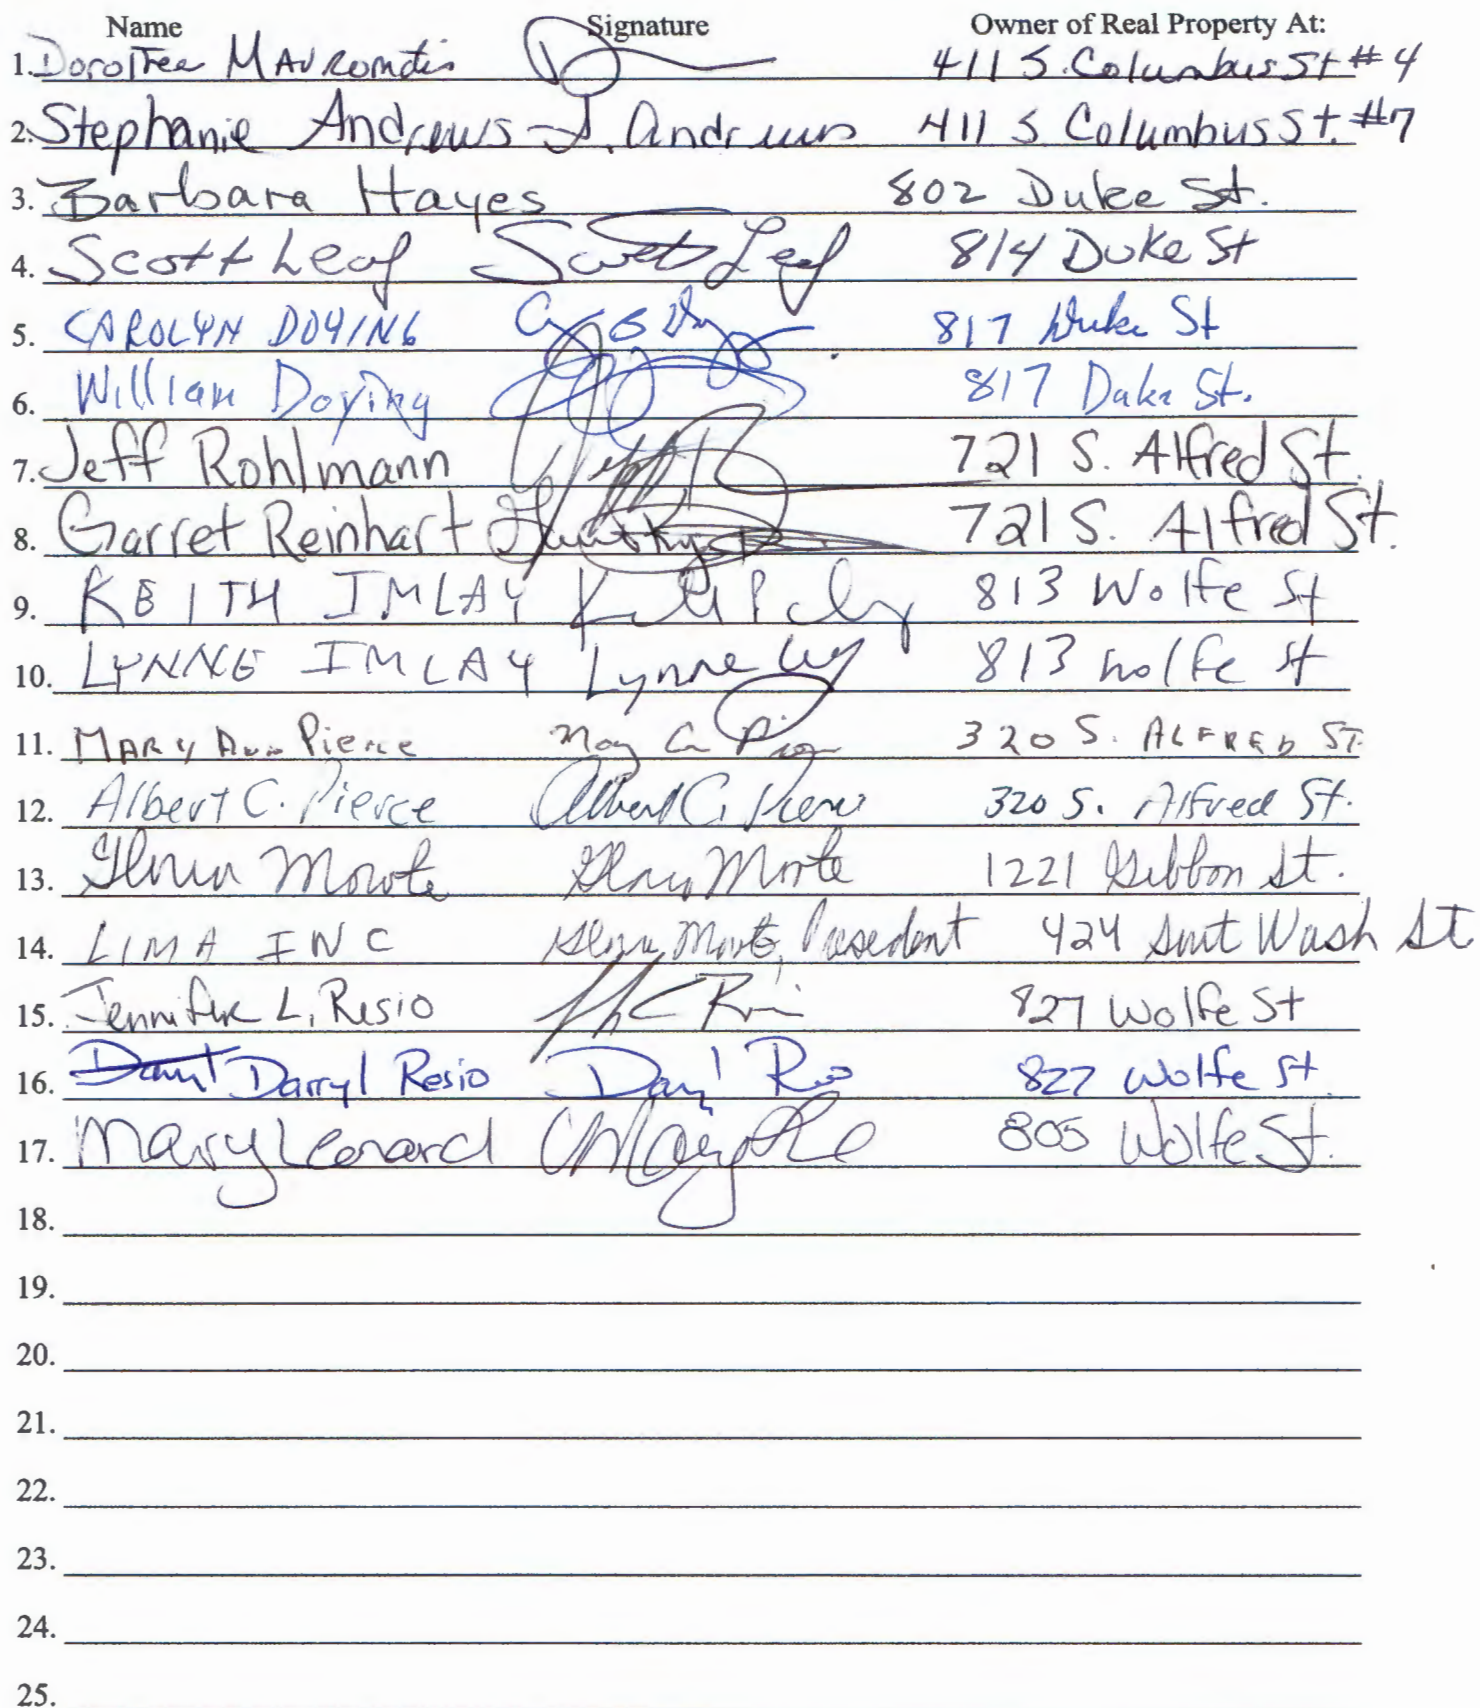 Name Signature Owner of Real Property At:
1. Dorothea Mavromatis 411 S. Columbus St #4
2. Stephanie Andrews S. Andrews 411 S Columbus St. #7
3. Barbara Hayes 802 Duke St.
4. Scott Leaf Scott Leaf 814 Duke St
5. CAROLYN DOYING 817 Duke St
6. William Doying 817 Duke St.
7. Jeff Rohlmann 721 S. Alfred St.
8. Garret Reinhart 721 S. Alfred St.
9. KEITH IMLAY 813 Wolfe St
10. LYNNE IMLAY Lynne 813 Wolfe St
11. MARY Ann Pierce 320 S. ALFRED ST.
12. Albert C. Pierce Albert C. Pierce 320 S. Alfred St.
13. Gloria Morote 1221 Gibbon St.
14. LIMA INC President 424 Wash St
15. Jennifer L. Resio 827 Wolfe St
16. Darryl Resio 827 Wolfe St.
17. Mary Leonard 805 Wolfe St.
18.
19.
20.
21.
22.
23.
24.
25.